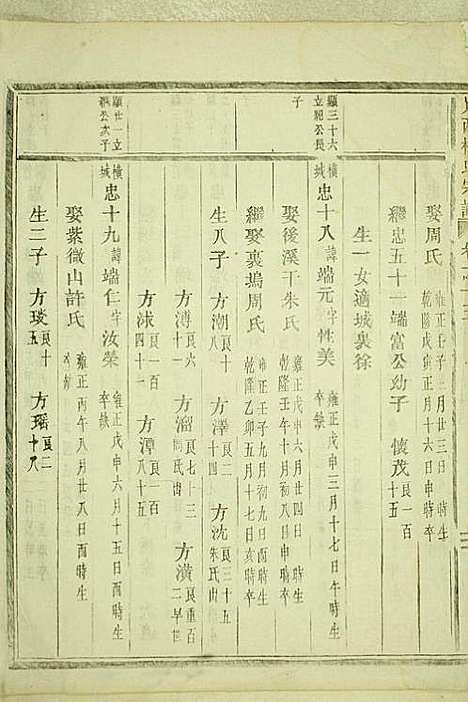 娶周氏
雍正 三月廿三日 時生
乾隆戊寅十一月十六日申時卒
繼忠五十一端富公幼子 懷茂 良一百一
生一女適城裏徐
顯三十六立紀公長子
橫城
忠十八 諱 端元 字 性美
雍正戊申三月十七日午時生
卒缺
娶後溪干朱氏
雍正戊申六月廿四日 時生
乾隆壬午十月初八日 時卒
繼娶裏塢周氏
雍正壬子九月初九日 時生
乾隆乙卯五月十七日亥時卒
生八子 方潮 良十八 方澤 良二十四 方沈 良三十五 朱氏出
方溥 良六十一 方溜 良七十三 周氏出 方潢 良重百二 早世
方浗 良一百四十一 方潭 良一百八十五
顯廿一立綱公次子
橫城
忠十九 諱 端仁 字 汝榮
雍正戊申六月十五日酉時生
卒缺
娶紫微山許氏
雍正丙午八月廿八日酉時生
卒缺
生二子 方琰 良十五 方瑶 良二十八